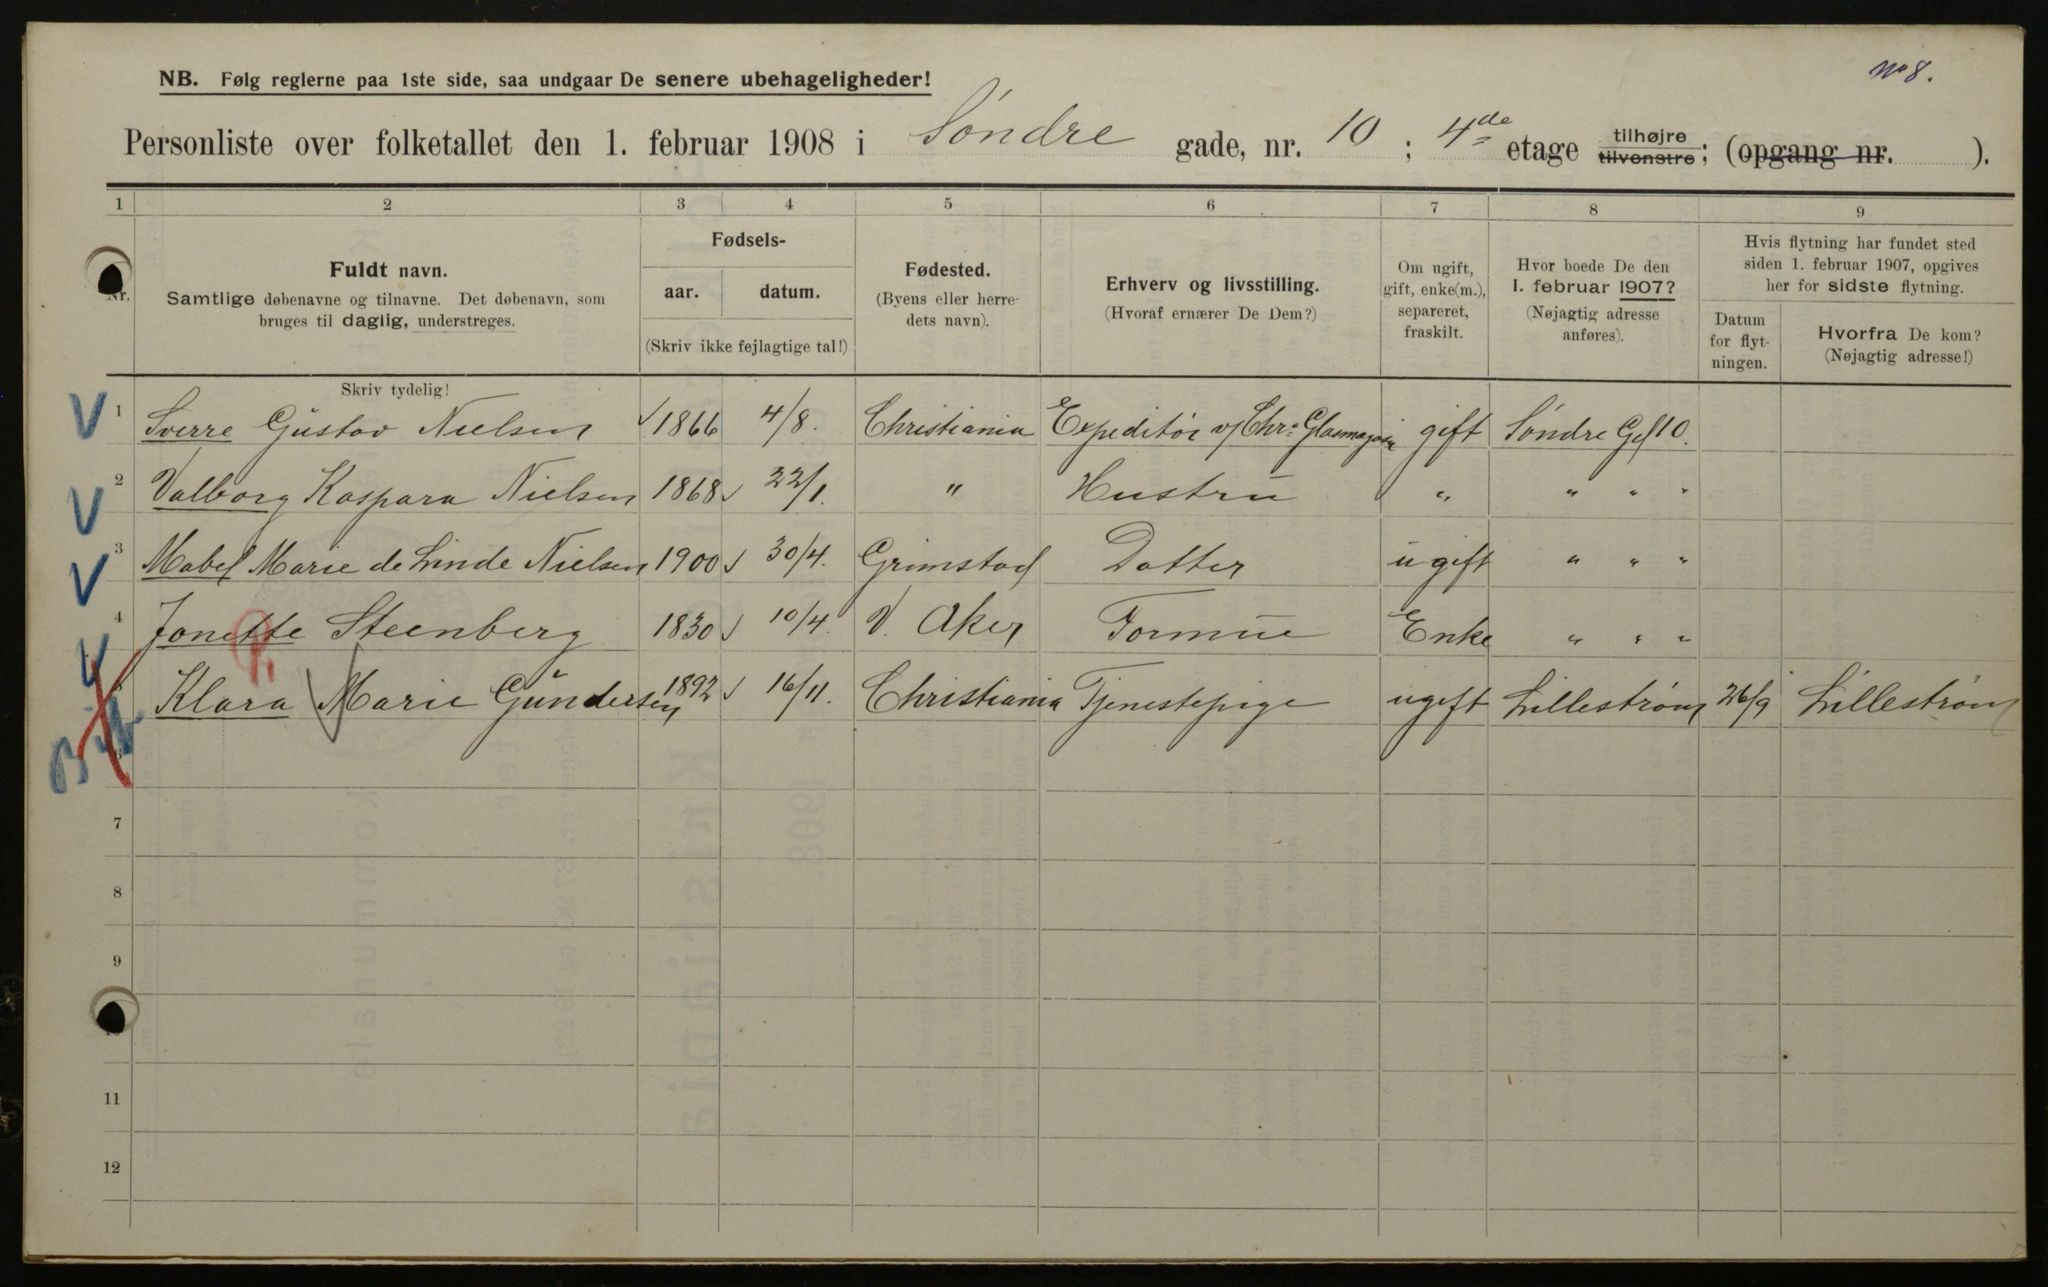 No 8.
NB. Følg reglerne paa 1ste side, saa undgaar De senere ubehageligheder!
Personliste over folketallet den 1. februar 1908 i Søndre gade, nr. 10 ; 4de etage tilhøjre tilvenstre; (opgang nr. ).
1 2 3 4 5 6 7 8 9
Nr.
Fuldt navn.
Samtlige døbenavne og tilnavne. Det døbenavn, som
bruges til daglig, understreges.
Fødsels-
aar. datum.
(Skriv ikke fejlagtige tal!)
Fødested.
(Byens eller herre-
dets navn).
Erhverv og livsstilling.
(Hvoraf ernærer De Dem?)
Om ugift,
gift, enke(m.),
separeret,
fraskilt.
Hvor boede De den
1. februar 1907?
(Nøjagtig adresse
anføres).
Hvis flytning har fundet sted
siden 1. februar 1907, opgives
her for sidste flytning.
Datum
for flyt-
ningen.
Hvorfra De kom?
(Nøjagtig adresse!)
Skriv tydelig!
1 Sverre Gustav Nielsen 1866 4/8. Christiania Expeditør v/Chr. Glasmagasin gift Søndre Gd 10.
2 Valborg Kaspara Nielsen 1868 22/1. " Hustru " " " "
3 Mabel Marie de Linde Nielsen 1900 30/4. Grimstad Datter ugift " " "
4 Jonette Steenberg 1830 10/4. V. Aker Formue Enke " " "
Klara Marie Gundersen 1892 16/11. Christiania Tjenestepige ugift Lillestrøm 26/9 Lillestrøm
6
7
8
9
11
12